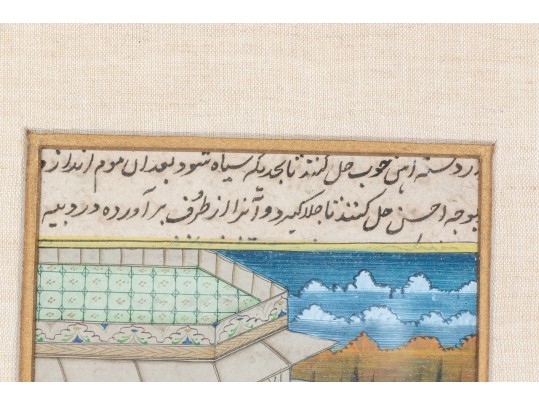 ردسته آهن خوب حل کنند تا بحدیکه سیاه شود بعد ان موم انداز
بوجه احسن حل کنند تا جلا کیرد و آنرا از ظرف بر آورده در دبیه